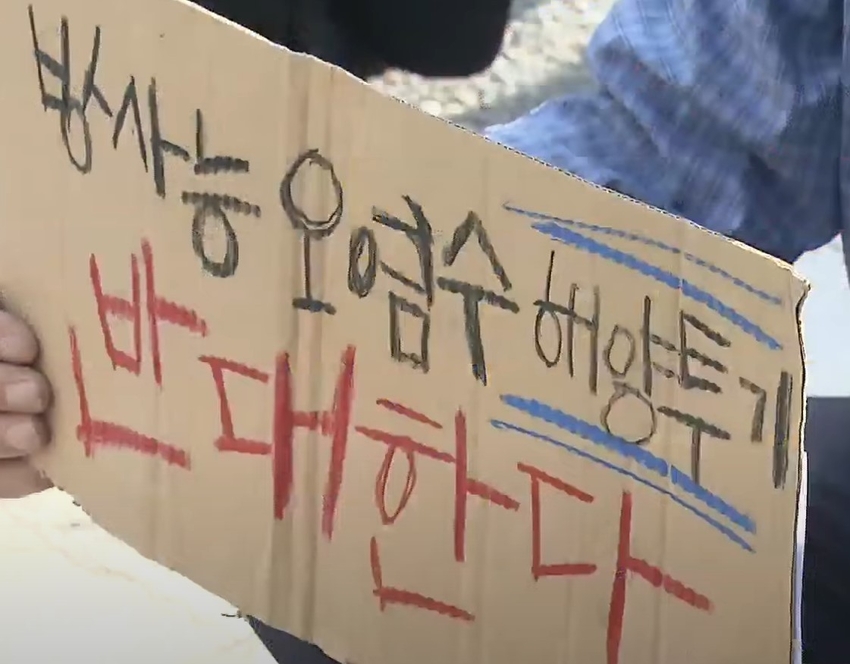 방사능 오염수 해양투기
반대한다